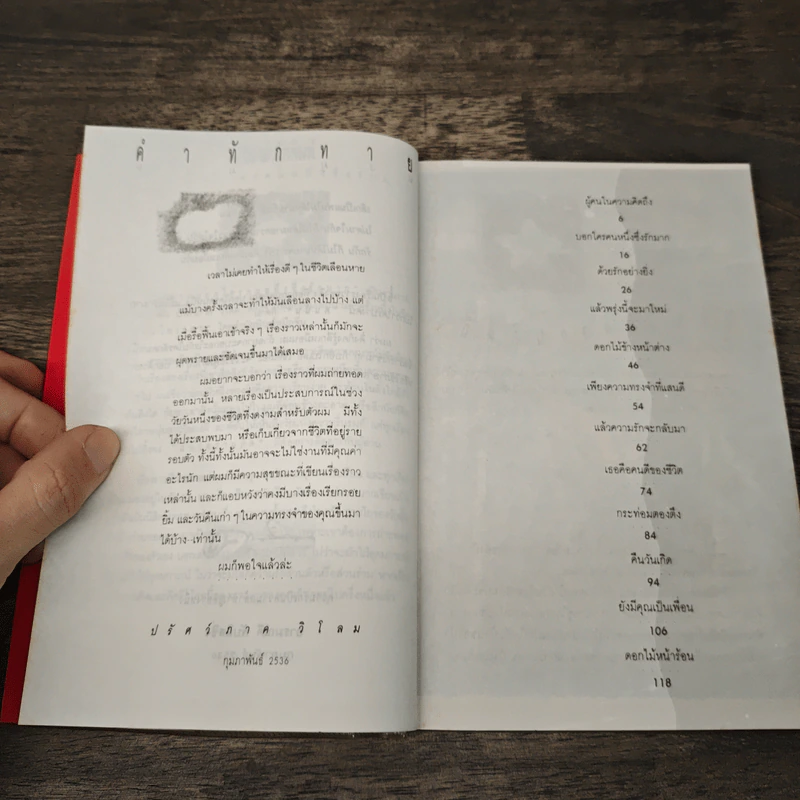 คำทักทาย
เวลาไม่เคยทำให้เรื่องดี ๆ ในชีวิตเลือนหาย
แม้บางครั้งเวลาจะทำให้มันเลือนลางไปบ้าง แต่
เมื่อรื้อฟื้นเอาเข้าจริง ๆ เรื่องราวเหล่านั้นก็มักจะ
ผุดพรายและชัดเจนขึ้นมาได้เสมอ
ผมอยากจะบอกว่า เรื่องราวที่ผมถ่ายทอด
ออกมานั้น หลายเรื่องเป็นประสบการณ์ในช่วง
วัยวันหนึ่งของชีวิตที่งดงามสำหรับตัวผม มีทั้ง
ได้ประสบพบมา หรือเก็บเกี่ยวจากชีวิตที่อยู่ราย
รอบตัว ทั้งนี้ทั้งนั้นมันอาจจะไม่ใช่งานที่มีคุณค่า
อะไรนัก แต่ผมก็มีความสุขขณะที่เขียนเรื่องราว
เหล่านั้น และก็แอบหวังว่าคงมีบางเรื่องเรียกรอย
ยิ้ม และวันคืนเก่า ๆ ในความทรงจำของคุณขึ้นมา
ได้บ้าง--เท่านั้น
ผมก็พอใจแล้วล่ะ
ปรัศว์ภาค วิโลม
กุมภาพันธ์ 2536
ผู้คนในความคิดถึง
6
บอกใครคนหนึ่งซึ่งรักมาก
16
ด้วยรักอย่างยิ่ง
26
แล้วพรุ่งนี้จะมาใหม่
36
ดอกไม้ข้างหน้าต่าง
46
เพียงความทรงจำที่แสนดี
54
แล้วความรักจะกลับมา
62
เธอคือคนดีของชีวิต
74
กระท่อมดองดึง
84
คืนวันเกิด
94
ยังมีคุณเป็นเพื่อน
106
ดอกไม้หน้าร้อน
118